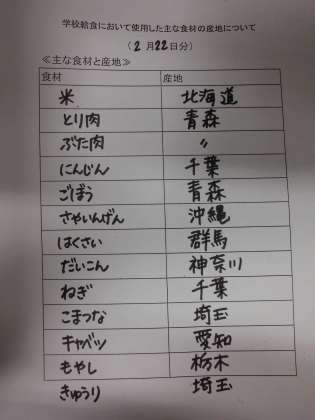 学校給食において使用した主な食材の産地について
(2月22日分)
≪主な食材と産地≫
食材 産地
米 北海道
とり肉 青森
ぶた肉 〃
にんじん 千葉
ごぼう 青森
さやいんげん 沖縄
はくさい 群馬
だいこん 神奈川
ねぎ 千葉
こまつな 埼玉
キャベツ 愛知
もやし 栃木
きゅうり 埼玉